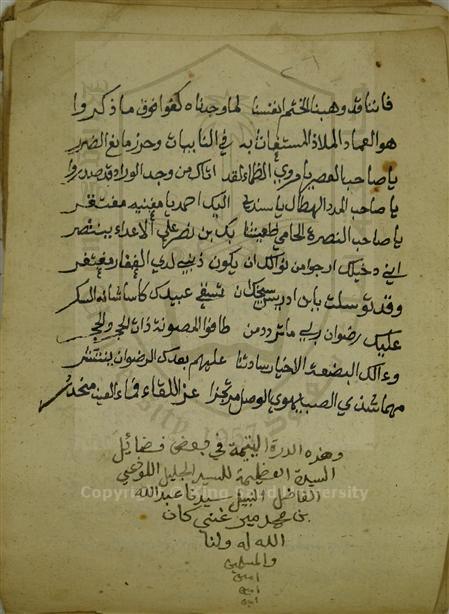 فاننا قد وهبنا الختم انفسنا لما وجدناه كفوا فوق ما ذكروا
هو العماد الملاذ المستغاث به في النايبات وحرز مانع الضرر
يا صاحب العصر يا مروي الظماء لقد اتاك من وجد الوراد قد صدروا
يا صاحب المدد الهطال يا سندي اليك احمد يا مغنيه مفتقر
يا صاحب النصرة الحامي بك بن نصر علي الاعداء ينتصر
اني دخيلك ارجو من نوالك ان يكون ذنبي لدي الغفار مغتفر
وقد توسلت بابن ادريس تسقي عبيدك كاسا شانه السكر
عليك رضوان ربي من طافوا المصونة ذات الحجر والحجر
وءالك البضعة الاخيار سادتنا عليهم بعدك الرضوان ينتشر
مهما شذي الصب يهوي الوصل مرتجزا عز اللقاء فماء العين منحدر
وهذه الدرة اليتيمة في بعض فضائل
السيدة العظيمة للسيد الجليل اللوذعي
الفاضل النبيل سيدنا عبدالله
بن محمد مير غني كان
الله له ولنا
والمسلمين
امين
امين
امين
Copyright © King Saud University
1957